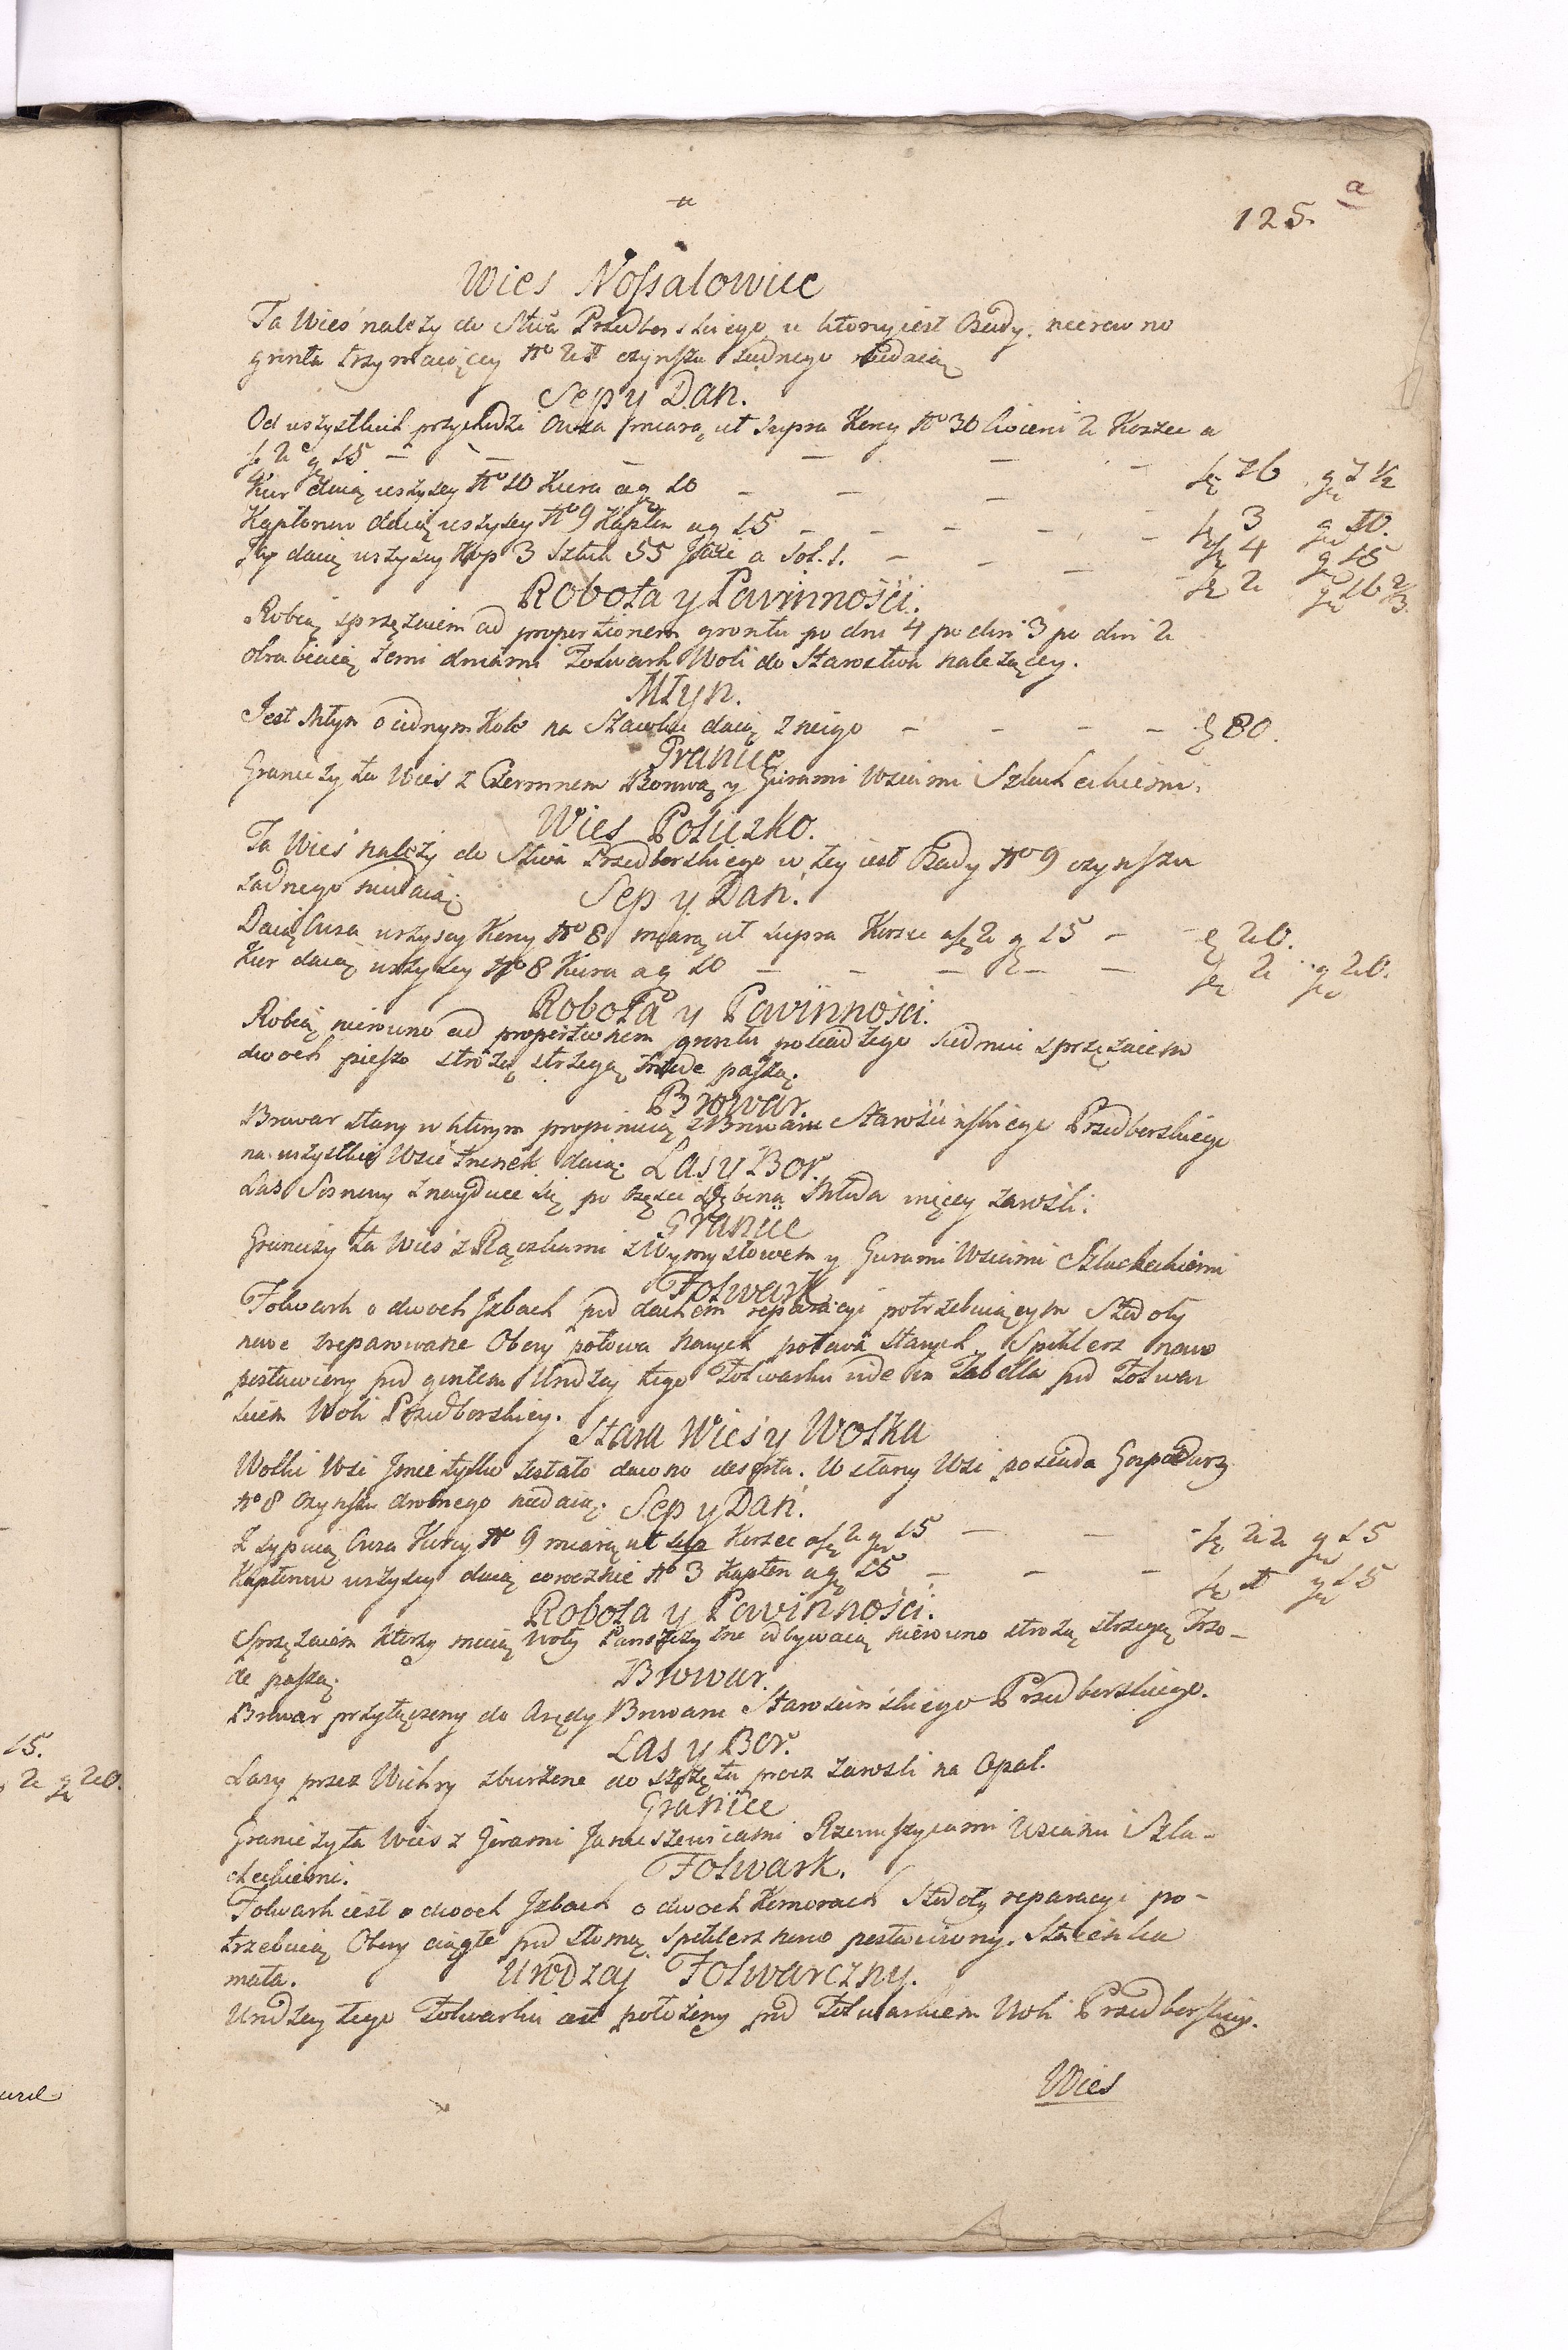 125. a
Wies Nossalowice
Ta Wieś należy do Stwa Przedborskiego w ktorey iest Osady. nierowno
gruntu trzymaiącey No czynszu żadnego niedaią
Sep y Dan.
Od wszystkich przychodzi Owsa miarą ut supra Korcy No 30 Korzec a
f 2 g 15 — — — — — —
Kur daią wszyscy No 10 Kura a g 10 — — — f 3 g 10.
Kapłonow daią wszyscy No 9 Kapłon a g 15 — — — — f 4 g 15
Jay daią wszyscy Kop 3 Sztuk 55 Jaie a Sol. 1. — — — f 2 g 16 2/3
Robota y Pawinności.
Robią sprzężaiem ad proportionem gruntu po dni 4 po dni 3 po dni 2
obrabiaią temi dniami Folwark Woli do Starostwa należącey.
Młyn.
Jest Młyn o iednym Kole na Stawku daią z niego — — — — f 80.
Granice
Graniczy ta Wieś z Czermnem y Gurami Wsiami Szlacheckiemi.
Wies Policzko.
Ta Wieś należy do Stwa Przedborskiego w tey iest Osady No 9 czynszu
żadnego niedaią.
Sep y Dań.
Daią Owsa wszyscy Korcy No 8 miarą ut supra Korzec a f 2 g 15 — f 20.
Kur daią wszyscy No 8 Kura a g 10 — — — — — f 2 g 20.
Robota y Pawinności.
Robią nierowno ad proportionem gruntu sprzężaiem
dwoch pieszo strożą strzegą Trzode paszą.
Browar.
Browar stary w ktorym propinuią z Browaru Starościńskiego Przedborskiego
na wszystkie Wsie trunek daią.
Las y Bor.
Las Sosnowy znayduie się po części dębina Młoda więcy zarośli.
Granice
Graniczy ta Wieś z Rączkami z Wymysłowem y Gurami Wsiami Szlacheckiemi
Folwark
Folwark o dwoch Jzbach pod dachem reparacyi potrzebuiącym Stodoły
nowe zreparowane Obory połowa nowych połowa starych. Spiklerz nowo
postawiony pod gontem Urodzay tego Folwarku vide in Tabella pod Folwar
kiem Woli Przedborskiey.
Stara Wieś y Wolka
Wolki Wsi Jmie tylko zostało dawno deserta. W stary Wsi posiada Gospodarzy
No 8 czynszu drobnego niedaią.
Sep y Dań.
Z sypuią Owsa Korcy No 9 miarą ut sup Korzec a f 2 g 15 — — — f 22 g 15
Kapłonow wszyscy daią corocznie No 3 Kapłon a g 15 — — — f 1 g 15
Robota y Pawinności.
Sprzężaiem ktorzy maią woły Panszczyznę odbywaią nierowno strożą strzegą Trzo-
de paszą.
Browar.
Browar przyłączony do Arędy Browaru Starościńskiego Przedborskiego.
Las y Bor.
Lasy przez Wichry zburzone do szczętu procz zarosli na Opał.
Granice
Graniczy ta Wies z Gorami Januszewicami Rzewuszycami Wsiami Szla-
checkiemi.
Folwark.
Folwark iest o dwoch Jzbach o dwoch Komorach Stodoły reparacyi po-
trzebuią Obory ciągłe pod słomą Spiklerz nowo postawiony. Staienka
mała.
Urodzaj Folwarczny.
Urodzay tego Folwarku położony pod Folwarkiem Woli Przedborskiy.
Wies